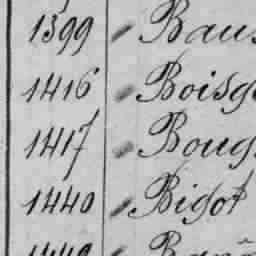 1399 Baus
1416 Boisg
1417 Boug
1440 Bigot